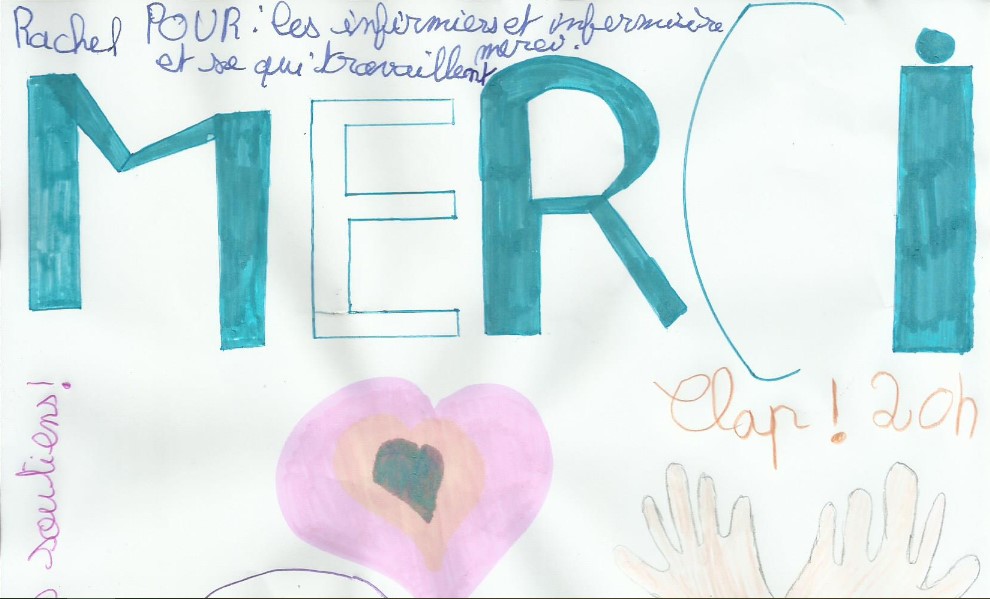 Rachel POUR : les infirmiers et infermisière
et se qui travaillent merci.
MERCi
Clap ! 20h
soutiens !